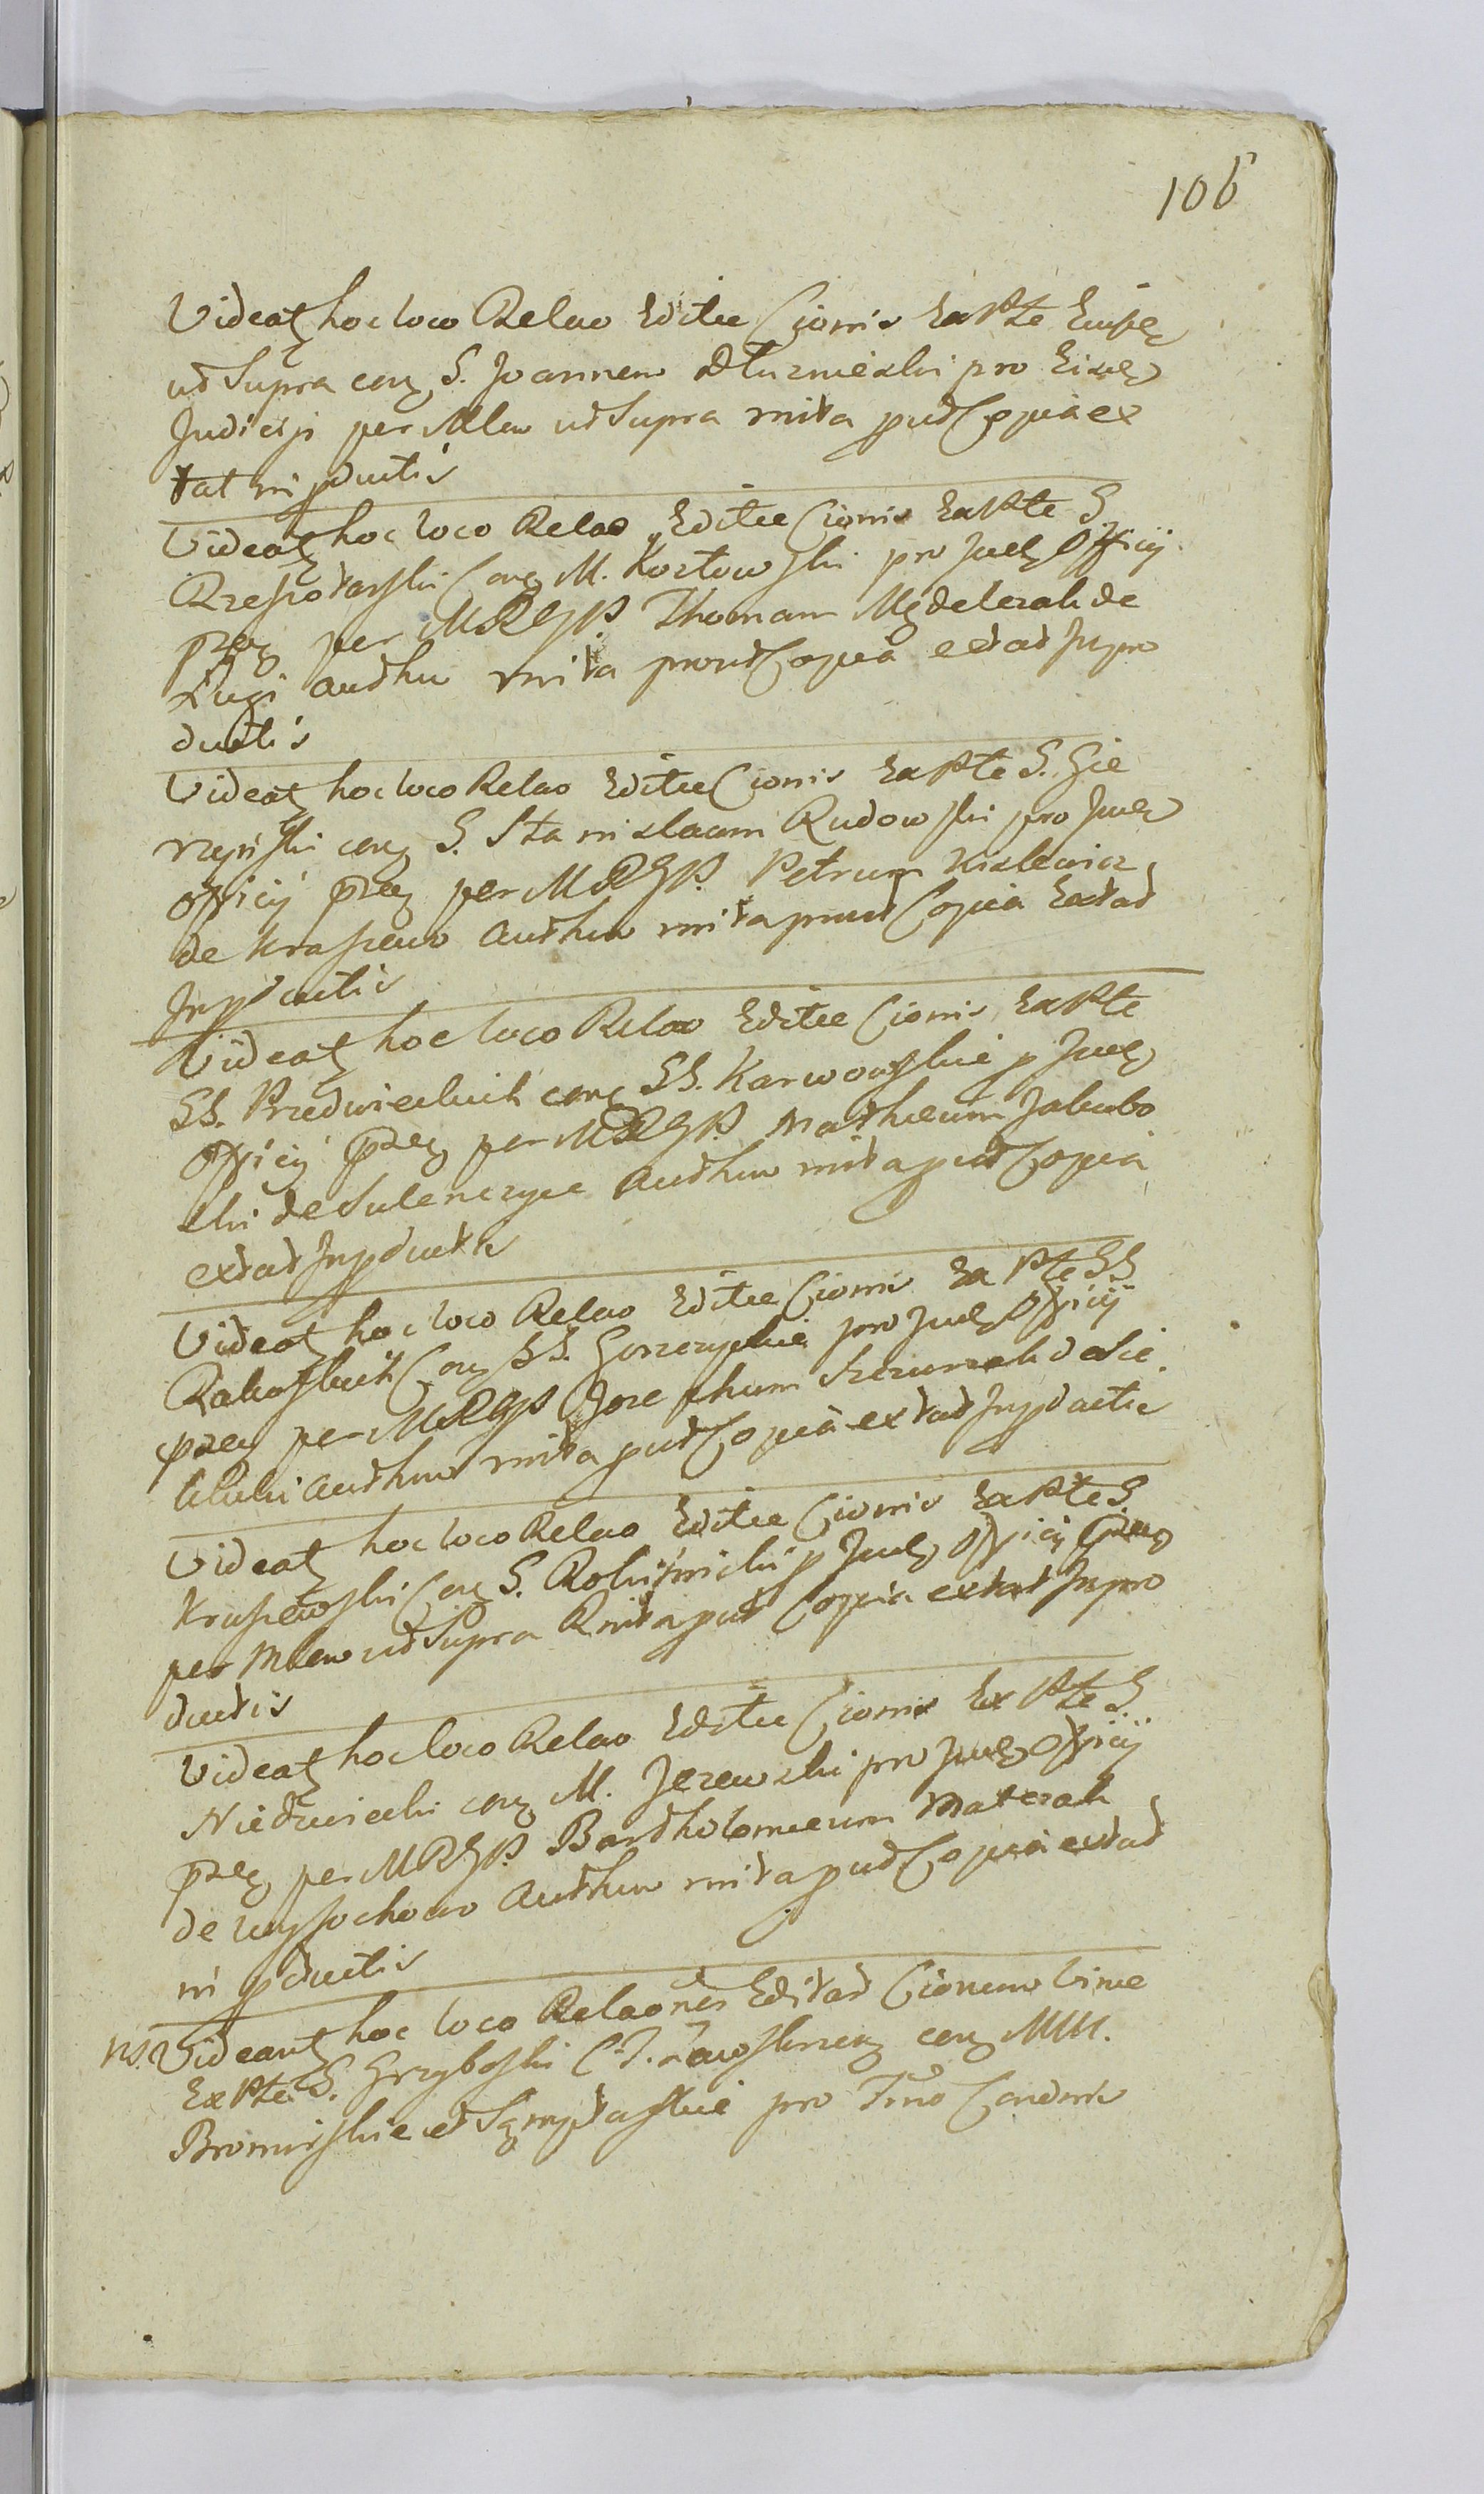 106
Videatʒ hoc loco Relao Editae Cionis Ex Pte Eiusd
ut Supra conʒ S. Joannem Dłuzniewski pro
Judicij per Mlem ut Supra nnita prout Copia ex
tat in pductis
Videatʒ hoc loco Relao Editae Cionis Ex Pte S
Rzeszotarski Conʒ M. Kozłowski pro Jud Officij
pzen per MRGP. Thomam Mydelczak de
Ługi authen nnita prout Copia extat Inpro
ductis
Videatʒ hoc loco Relao Editae Cionis Ex Pte S. Sie
rzpiski conʒ S. Stanislaum Rudowski pro Jud
officij pzen per MRGP. Petrum Kislewicz
de Kraszewo authen nnita prout Copia Extat
Inpductis
Videatʒ hoc loco Relao Editae Cionis Ex Pte
SS. Przedwieckich conʒ SS. Karwowskie p Jud
officij pzen per MRGP. Mathaeum Jakubo
ski de Sulenczyce authen nnita prout Copia
extat Inpductis
Videatʒ hoc loco Relao Editae Cionis Ex Pte SS
Rakoskich Conʒ SS. Gonczyckie pro Jud Officij
pzen per MRGP Josephum de Sie
authen nnita prout Copia extat Inpductis
Videatʒ hoc loco Relao Editae Cionis Ex Pte S
Kraszewski Conʒ S. Rokitnicki p Jud officij pzen
per Mlem ut Supra Rnita prout Copia extat Inpro
ductis
Videatʒ hoc loco Relao Editae Cionis Ex Pte S
Niedzwiecki conʒ M. Jezewski pro Jud officij
pzen per MRGP. Bartholomaeum Materak
de wysochowo authen nnita prout Copia extat
in pductis
NS. Videantʒ hoc loco Relaones Editar Cionum binae
Ex Pte S. Grzyboski C. T. conʒ MM.
Bromirskie et pro Tino Conden